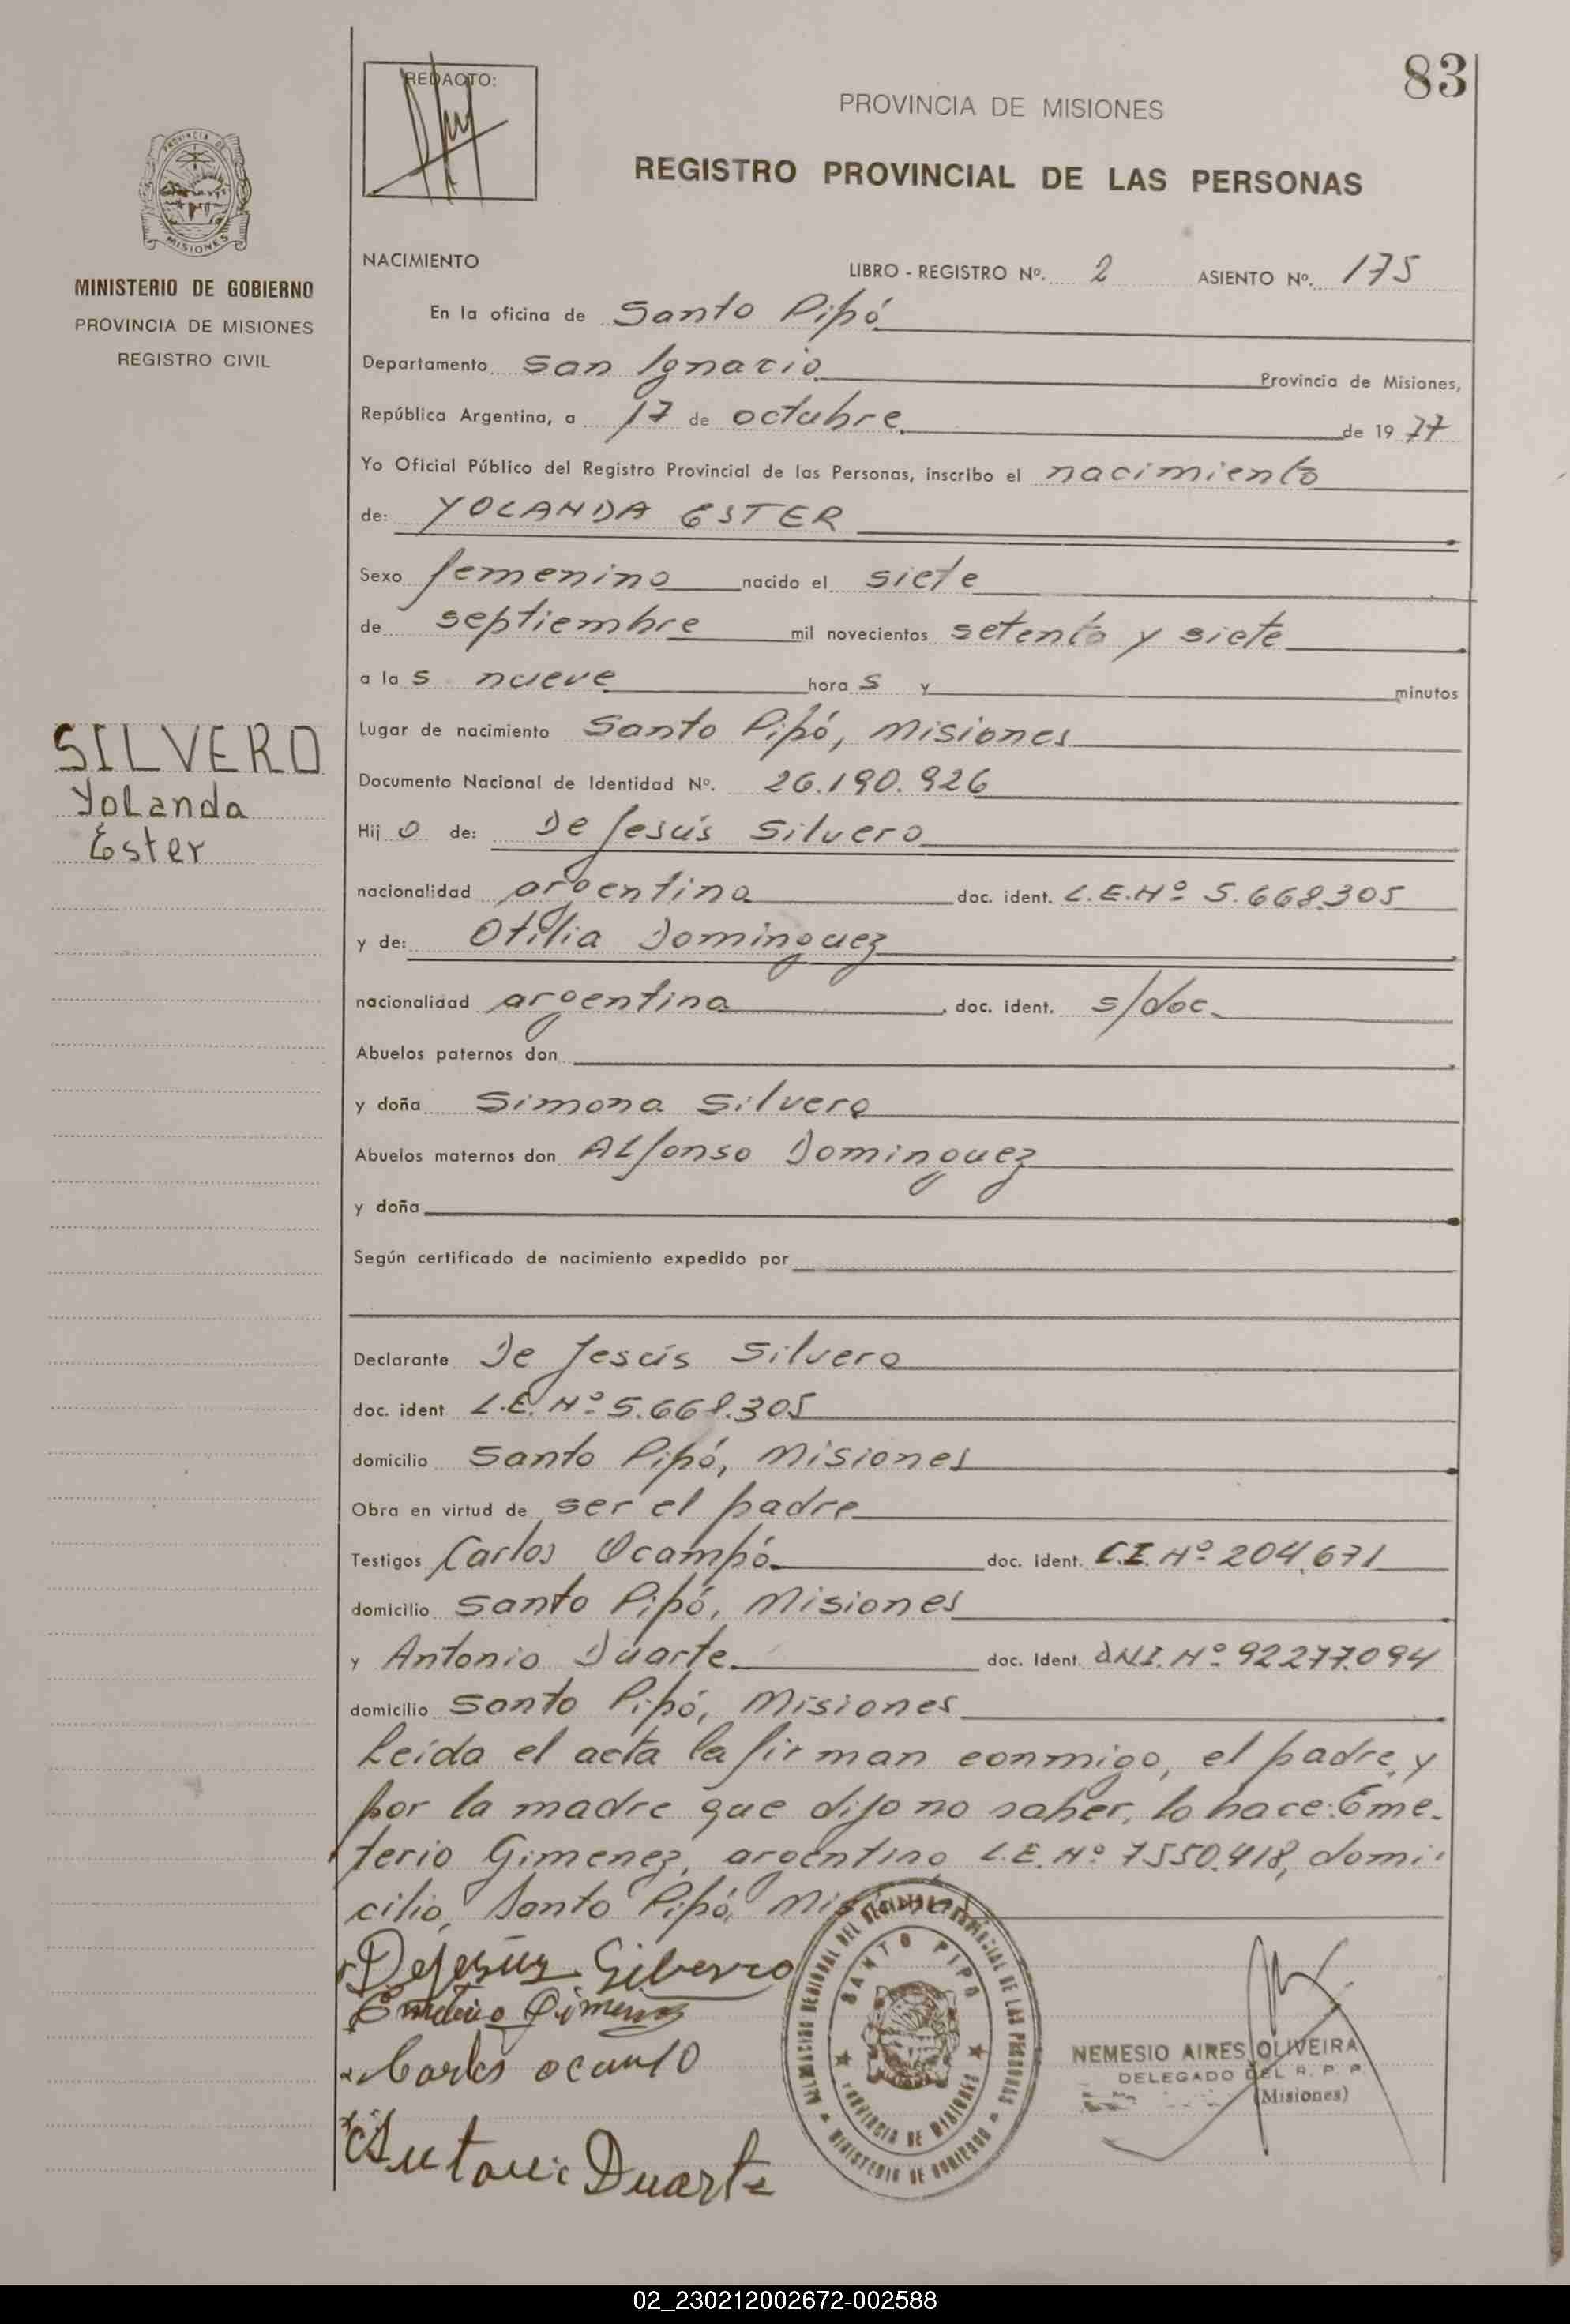 83
REDACTO:
PROVINCIA DE MISIONES
REGISTRO PROVINCIAL DE LAS PERSONAS
PROVINCIA DE
MISIONES
MINISTERIO DE GOBIERNO
PROVINCIA DE MISIONES
REGISTRO CIVIL
NACIMIENTO LIBRO - REGISTRO Nº. 2 ASIENTO Nº. 175
En la oficina de Santo Pipó
Departamento San Ignacio Provincia de Misiones,
República Argentina, a 17 de octubre de 1977
Yo Oficial Público del Registro Provincial de las Personas, inscribo el nacimiento
de: YOLANDA ESTER
Sexo femenino nacido el siete
de septiembre mil novecientos setenta y siete
a las nueve horas y minutos
SILVERO
Yolanda
Ester
Lugar de nacimiento Santo Pipó, Misiones
Documento Nacional de Identidad Nº. 26.190.926
Hijo de: De Jesús Silvero
nacionalidad argentina doc. ident. L.E.Nº 5.668.305
y de: Otilia Dominguez
nacionalidad argentina doc. ident. s/doc.
Abuelos paternos don
y doña Simona Silvero
Abuelos maternos don Alfonso Dominguez
y doña
Según certificado de nacimiento expedido por
Declarante De Jesús Silvero
doc. ident L.E. Nº 5.668.305
domicilio Santo Pipó, Misiones
Obra en virtud de ser el padre
Testigos Carlos Ocampó doc. ident. C.I. Nº 204.671
domicilio Santo Pipó, Misiones
y Antonio Duarte doc. Ident. DNI. Nº 92.277.094
domicilio Santo Pipó, Misiones
Leída el acta la firman conmigo, el padre, y
por la madre que dijo no saber, lo hace: Eme-
terio Gimenez, argentino L.E. Nº 7.550.418, domi-
cilio, Santo Pipó, Misiones
Dejesus Silverro
Emeterio Gimenez
Carlos ocampo
Antonio Duarte
DELEGACION REGIONAL DEL REGISTRO PROVINCIAL DE LAS PERSONAS
MINISTERIO DE GOBIERNO
SANTO PIPO
PROVINCIA DE MISIONES
NEMESIO AIRES OLIVEIRA
DELEGADO DEL R. P. P.
(Misiones)
02_230212002672-002588